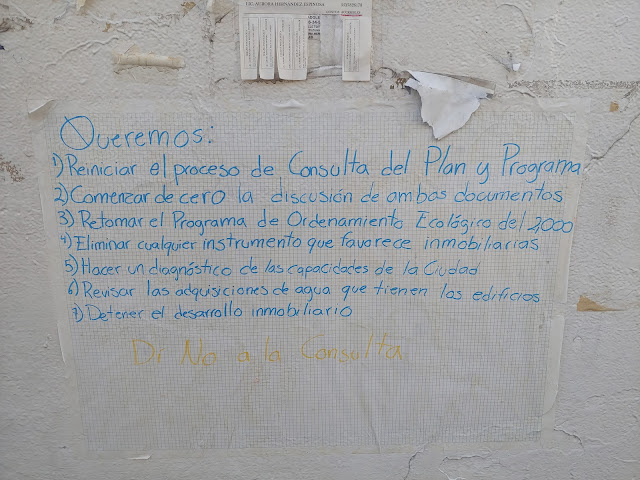 LIC. AURORA HERNANDEZ ESPINOSA
Queremos:
1) Reiniciar el proceso de Consulta del Plan y Programa
2) Comenzar de cero la discusión de ambos documentos
3) Retomar el Programa de Ordenamiento Ecológico del 2,000
4) Eliminar cualquier instrumento que favarece inmobiliarias
5) Hacer un diagnóstico de las capacidades de la Ciudad
6) Revisar las adquisiciones de agua que tienen los edificios
7) Detener el desarrollo inmobiliario
Di No a la Consulta